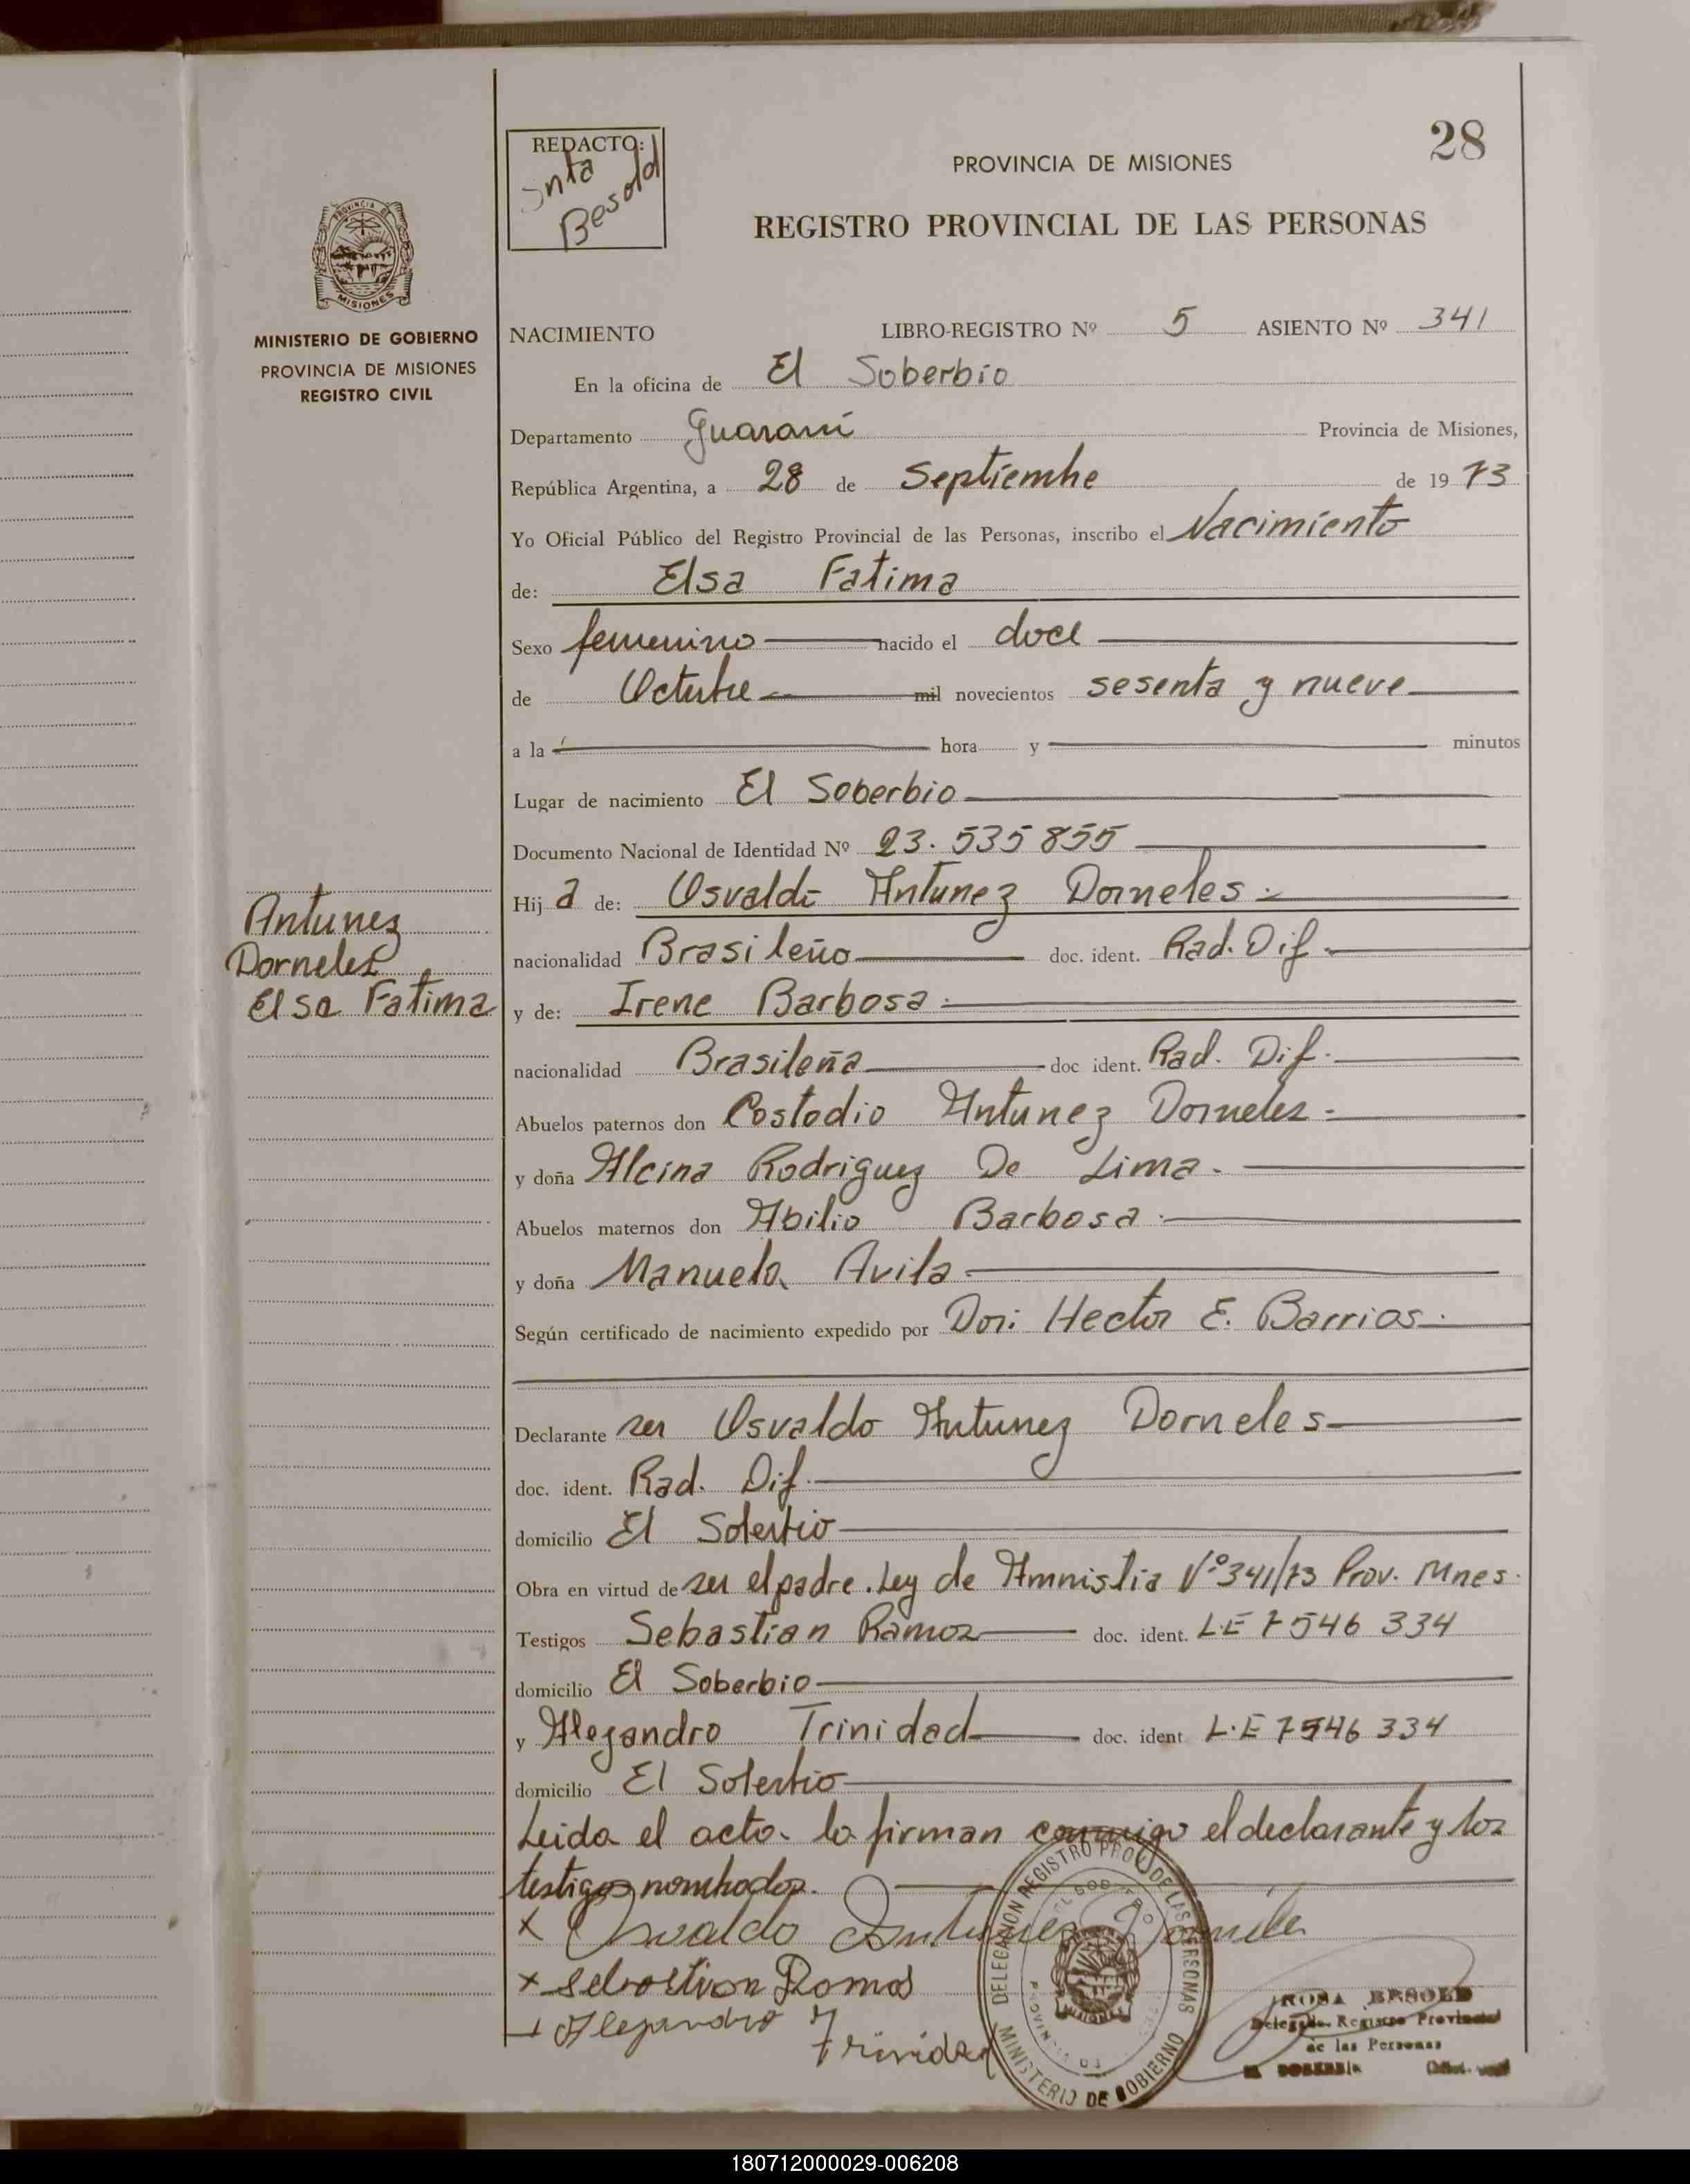 28
REDACTO:
Snta
Besold
PROVINCIA DE MISIONES
REGISTRO PROVINCIAL DE LAS PERSONAS
PROVINCIA DE
MISIONES
MINISTERIO DE GOBIERNO
PROVINCIA DE MISIONES
REGISTRO CIVIL
NACIMIENTO LIBRO-REGISTRO Nº 5 ASIENTO Nº 341
En la oficina de El Soberbio
Departamento Guaraní Provincia de Misiones,
República Argentina, a 28 de Septiembre de 1973
Yo Oficial Público del Registro Provincial de las Personas, inscribo el Nacimiento
de: Elsa Fatima
Sexo femenino nacido el doce
de Octubre mil novecientos sesenta y nueve
a la hora y minutos
Lugar de nacimiento El Soberbio
Documento Nacional de Identidad Nº 23.535855
Hij a de: Osvaldo Antunez Dorneles
nacionalidad Brasileño doc. ident. Rad. Dif.
y de: Irene Barbosa.
nacionalidad Brasileña doc ident. Rad. Dif.
Abuelos paternos don Costodio Antunez Dorneles
y doña Alcina Rodriguez De Lima.
Abuelos maternos don Abilio Barbosa.
y doña Manuela Avila
Según certificado de nacimiento expedido por Dor: Hector E. Barrios.
Antunez
Dorneles
Elsa Fatima
Declarante ser Osvaldo Antunez Dorneles
doc. ident. Rad. Dif.
domicilio El Soberbio
Obra en virtud de ser el padre. Ley de Amnistia Nº 341/73 Prov. Mnes.
Testigos Sebastian Ramos doc. ident. L.E 7546 334
domicilio El Soberbio
y Alejandro Trinidad doc. ident L.E 7546 334
domicilio El Soberbio
Leida el acta la firman conmigo el declarante y los
testigos nombrados.
x Osvaldo Antunez Dornele
x Sebastian Ramos
Alejandro Trinidad
DELEGACION REGISTRO PROV. DE LAS PERSONAS
MINISTERIO DE GOBIERNO
ROSA BESOLD
Delegada Registro Provincial
de las Personas
EL SOBERBIO
180712000029-006208